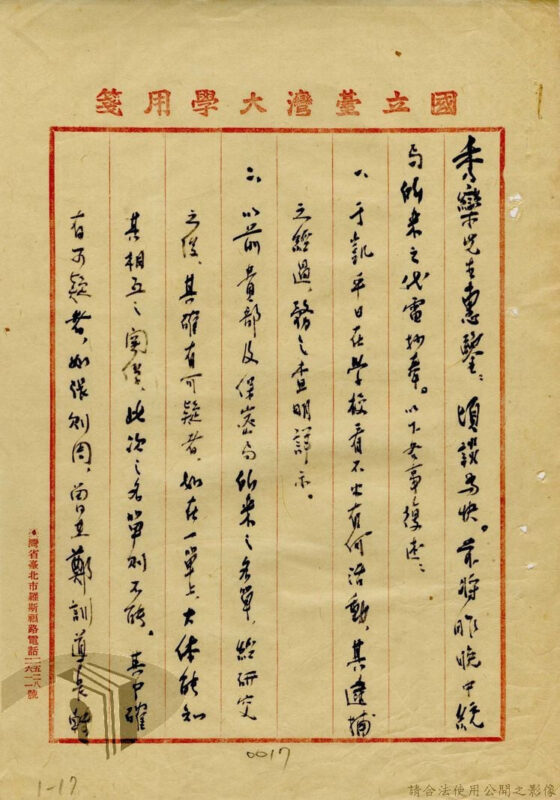 國立臺灣大學用箋
秀巒先生惠鑒：頃談為快。茲將昨晚中統
局所來之代電抄奉。以下各事復述：
一、于凱平日在學校看不出有何活動，其逮捕
之經過，務之查明詳示。
二、以前貴部及保密局所來之名單，經研究
之後，其確有可疑者，如在一單上，大体能知
其相互之關係，此次之名單則不能。其中確
有可疑者，如張則周，當且鄭訓導長
灣省臺北市羅斯福路電話二五二八號
0017
1-17
請合法使用公開之影像